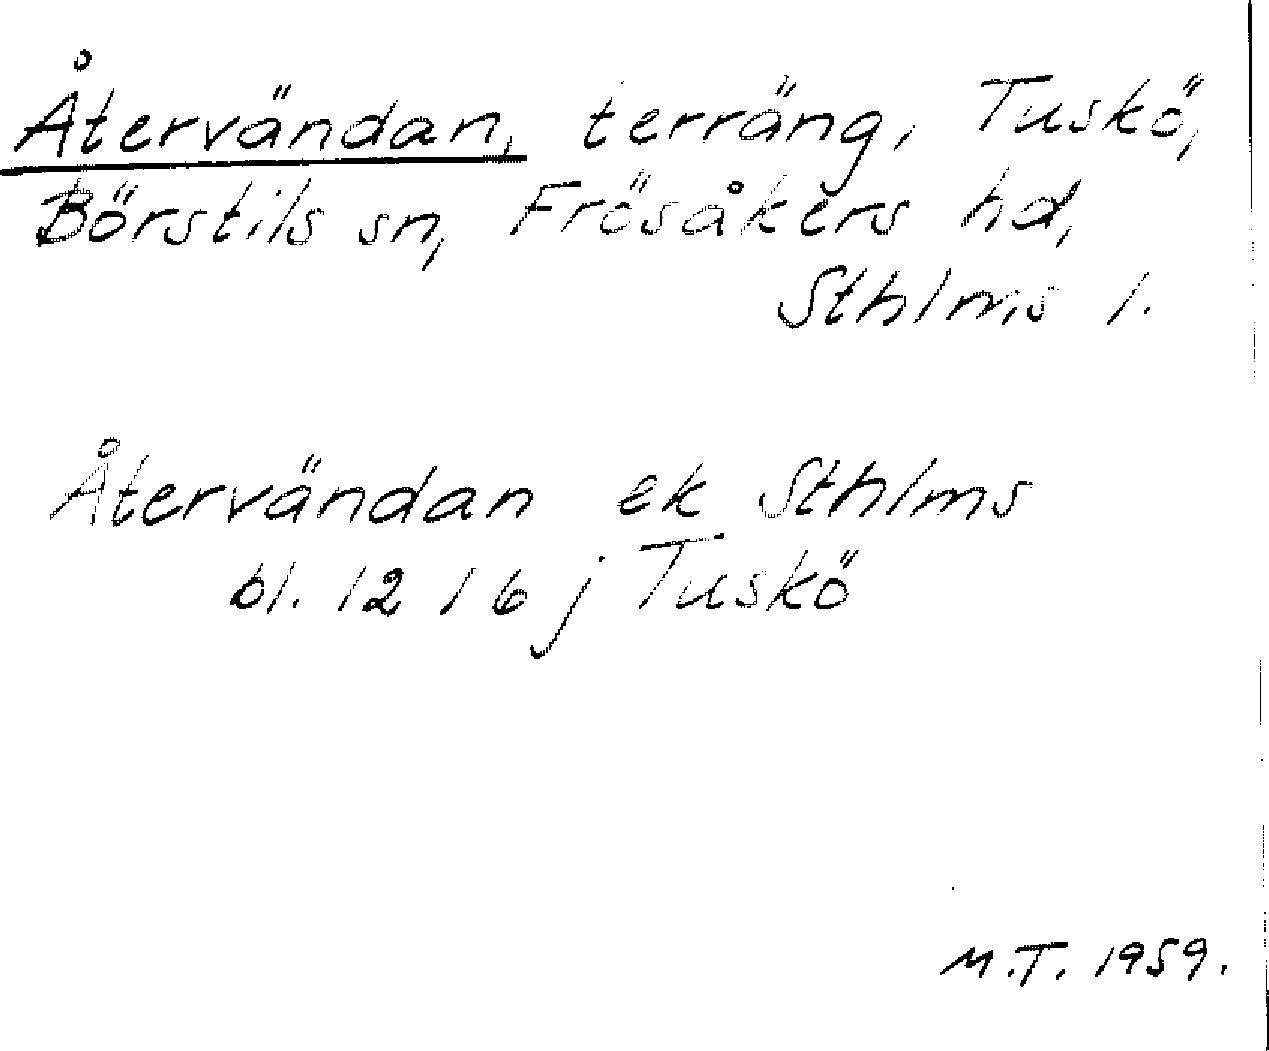 Återvändan, terräng, Tuskö,
Börstils sn, Frösåkers hd,
Sthlms l.
Återvändan ek Sthlms
bl. 12 16 j Tuskö
M.T. 1959.